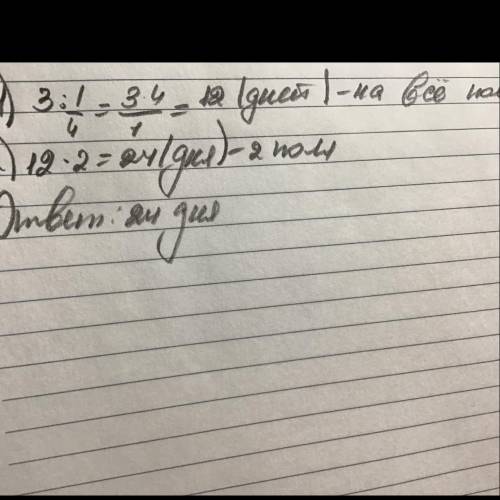 ) 3 : 1/4 = 3·4/1 = 12 (дней) – на всё пол
) 12·2 = 24 (дня) – 2 поля
Ответ: 24 дня